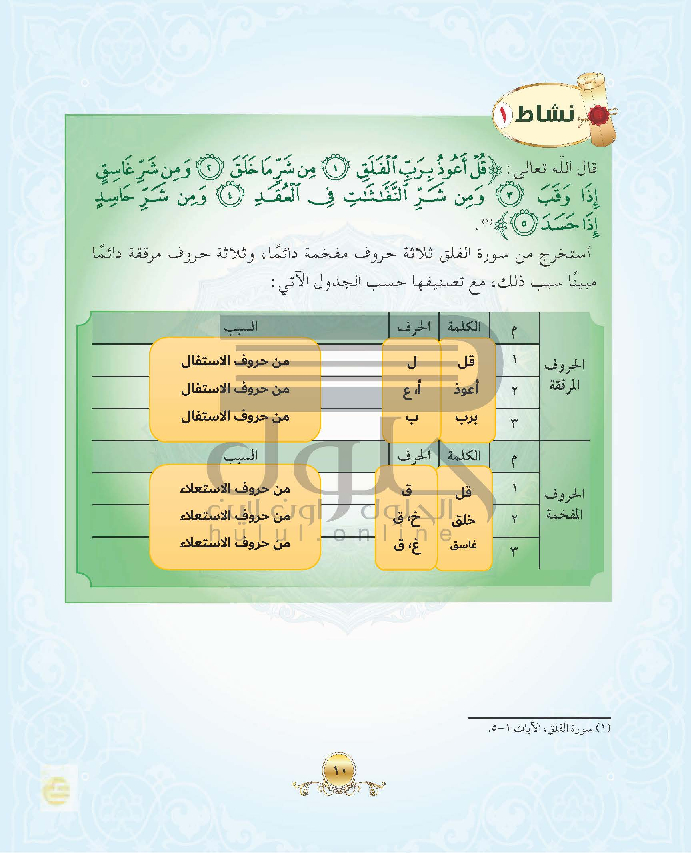 نشاط ١
قال الله تعالى: ﴿قُلْ أَعُوذُ بِرَبِّ ٱلْفَلَقِ ۝١ مِن شَرِّ مَا خَلَقَ ۝٢ وَمِن شَرِّ غَاسِقٍ
إِذَا وَقَبَ ۝٣ وَمِن شَرِّ ٱلنَّفَّٰثَٰتِ فِى ٱلْعُقَدِ ۝٤ وَمِن شَرِّ حَاسِدٍ
إِذَا حَسَدَ ۝٥﴾(١).
أستخرج من سورة الفلق ثلاثة حروف مفخمة دائمًا، وثلاثة حروف مرققة دائمًا
مبينًا سبب ذلك، مع تصنيفها حسب الجدول الآتي:
م الكلمة الحرف السبب
الحروف المرققة
١ قل ل من حروف الاستفال
٢ أعوذ أ، ع من حروف الاستفال
٣ برب ب من حروف الاستفال
م الكلمة الحرف السبب
الحروف المفخمة
١ قل ق من حروف الاستعلاء
٢ خلق خ، ق من حروف الاستعلاء
٣ غاسق غ، ق من حروف الاستعلاء
حلول
الحلول اون لاين
hulul.online
(١) سورة الفلق، الآيات ١-٥.
١٠